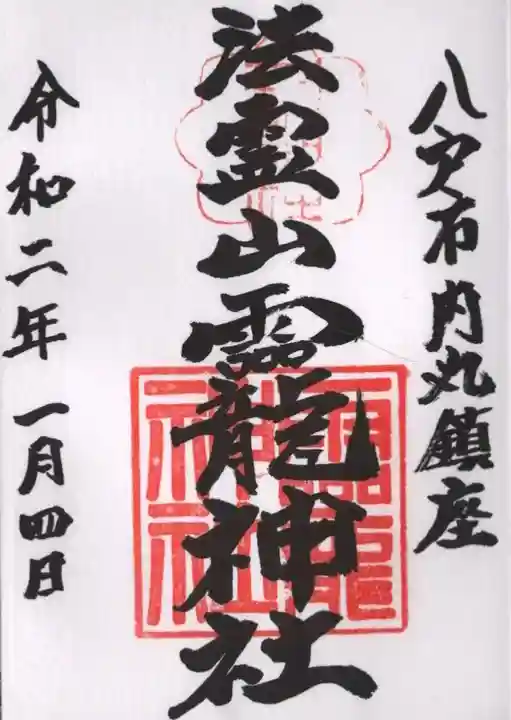 八戸市内丸鎮座
法霊山龗龍神社
令和二年 一月四日